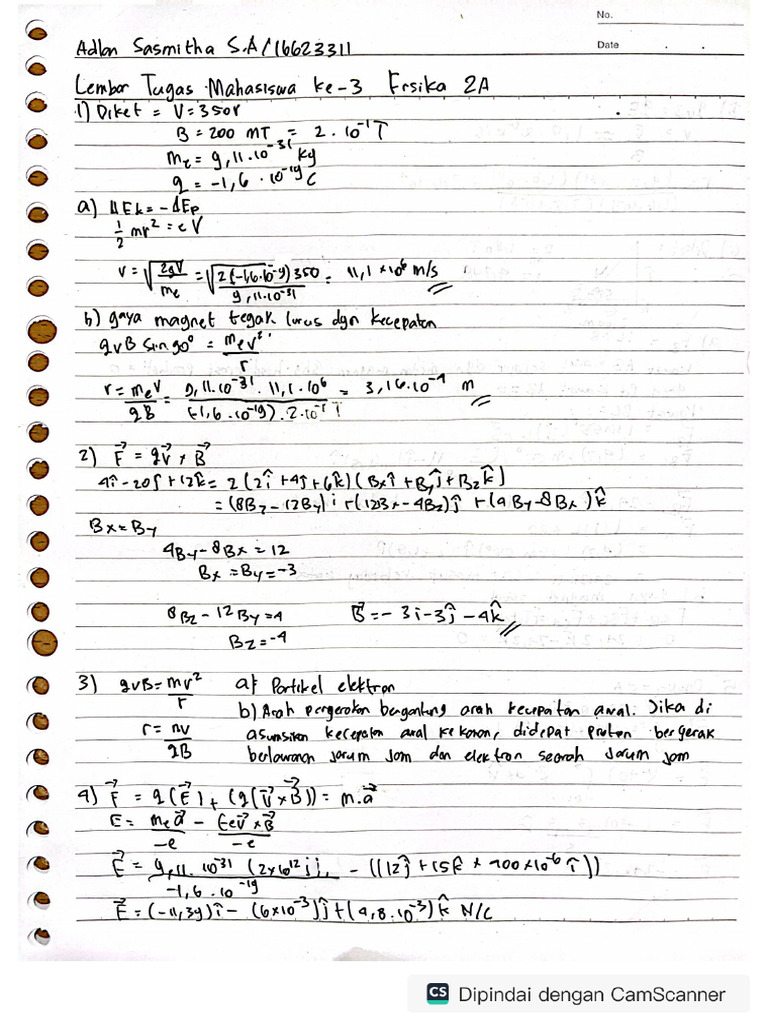 No.
Date . .
Adlan Sasmitha S.A/16623311
Lembar Tugas Mahasiswa ke-3 Fisika 2A
1) Diket = V = 350V
B = 200 MT = 2 . 10⁻¹ T
mₑ = 9,11.10⁻³¹ kg
q = -1,6 . 10⁻¹⁹ C
a) ΔEk = -ΔEp
1/2 mv² = eV
v = √(2qV/me) = √(2(-1,6.10⁻⁹)350/9,11.10⁻³¹) = 11,1 × 10⁶ m/s
b) gaya magnet tegak lurus dgn kecepatan
qvB sin90° = mev²/r
r = mev/qB = 9,11.10⁻³¹ . 11,1 . 10⁶/(-1,6 . 10⁻¹⁹) . 2.10⁻¹ T = 3,16.10⁻⁴ m
2) F⃗ = qv⃗ × B⃗
4î - 20ĵ + 12k̂ = 2(2î + 4ĵ + 6k̂)(Bxî + Byĵ + Bzk̂)
= (8Bz - 12By)i + (12Bx - 4Bz)ĵ + (4By - 8Bx)k̂
Bx = By
4By - 8Bx = 12
Bx = By = -3
8Bz - 12By = 4 B⃗ = -3i - 3ĵ - 4k̂
Bz = -4
3) qvB = mv²/r a) Partikel elektron
b) Arah pergerakan bergantung arah kecepatan awal. Jika di
r = mv/qB asumsikan kecepatan awal ke kanan, didapat proton bergerak
berlawanan jarum jam dan elektron searah jarum jam
4) F⃗ = q(E⃗) + (q(v⃗ × B⃗)) = m.a⃗
E = mea⃗/-e - (-ev⃗ × B⃗)/-e
E⃗ = 9,11 . 10⁻³¹ (2×10¹² i)/-1,6 . 10⁻¹⁹ - ((12ĵ + 15k̂ × 400×10⁻⁶ î))
E⃗ = (-11,39)î - (6×10⁻³)ĵ + (4,8.10⁻³)k̂ N/C
CS Dipindai dengan CamScanner